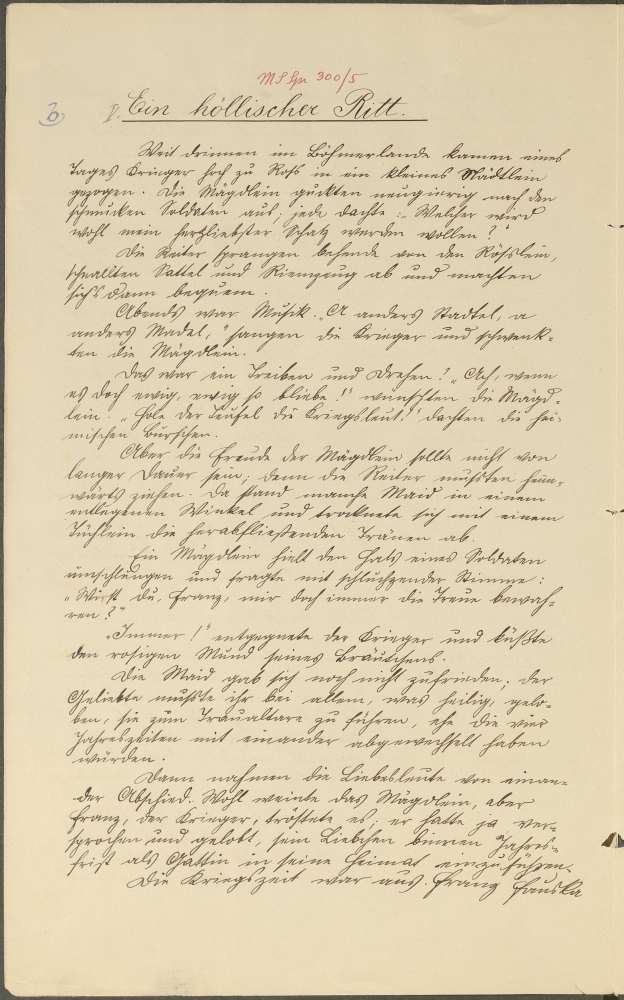 MS Gr 300/5
6)
V. Ein höllischer Ritt.
Weit drinnen im Böhmerlande kamen eines
Tages Krieger hoch zu Roß in ein kleines Städtlein
gezogen. Die Mägdlein guckten neugierig nach den
schmucken Soldaten aus; jede dachte: „Welcher wird
wohl mein herzliebster Schatz werden wollen?"
Die Reiter sprangen behende von den Rößlein,
schnallten Sattel und Riemzeug ab und machten
sich's dann bequem.
Abends war Musik. „A anders Stadtel, a
anders Madel," sangen die Krieger und schwenk-
ten die Mägdlein.
Das war ein Treiben und Drehen! „Ach, wenn
es doch ewig, ewig so bliebe!" wünschten die Mägd-
lein. „Hole der Teufel die Kriegsleut!" dachten die hei-
mischen Burschen.
Aber die Freude der Mägdlein sollte nicht von
langer Dauer sein; denn die Reiter mußten heim-
wärts ziehen. Da stand manche Maid in einem
entlegenen Winkel und trocknete sich mit einem
Tüchlein die herabfließenden Tränen ab.
Ein Mägdlein hielt den Hals eines Soldaten
umschlungen und fragte mit schluchzender Stimme:
„Wirst du, Franz, mir doch immer die Treue bewah-
ren?"
„Immer!" entgegnete der Krieger und küßte
den rosigen Mund seines Bräutchens.
Die Maid gab sich noch nicht zufrieden; der
Geliebte mußte ihr bei allem, was heilig, gelo-
ben, sie zum Traualtare zu führen, ehe die vier
Jahreszeiten mit einander abgewechselt haben
würden.
Dann nahmen die Liebesleute von einan-
der Abschied. Wohl weinte das Mägdlein, aber
Franz, der Krieger, tröstete es; er hatte ja ver-
sprochen und gelobt, sein Liebchen binnen Jahres-
frist als Gattin in seine Heimat einzuführen.
Die Kriegszeit war aus. Franz Hauska